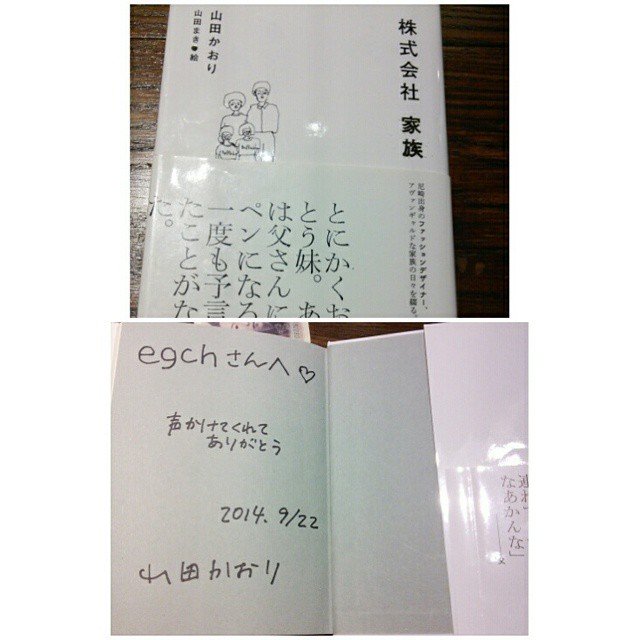 株式会社 家族
山田かおり
山田まき♥絵
尼崎出身のファッションデザイナー、
アヴァンギャルドな家族の日々を綴る。
とにかくお
とう妹。あ
は父さんに
ペンになろ
一度も予言
たことがな
た。
egchさんへ♡
声かけてくれて
ありがとう
2014. 9/22
山田かおり
連れ
なあかんな」